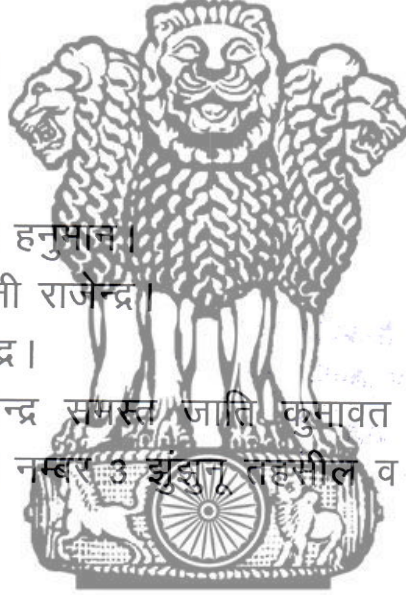 हनुमान।
नी राजेन्द्र।
द्र।
न्द्र समस्त जाति कुमावत
नम्बर 3 झुंझुनू तहसील व